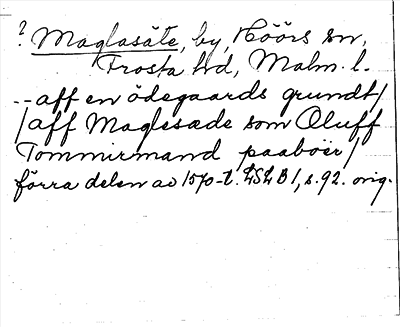 ? Maglasäte, by, Höörs sn,
Frosta hd, Malm. l.
-- aff en ödegaards grundt/
/aff Maglesæde som Oluff
Tommirmand paaboer/
förra delen av 1570-t. LSLB 1, s. 92. orig.